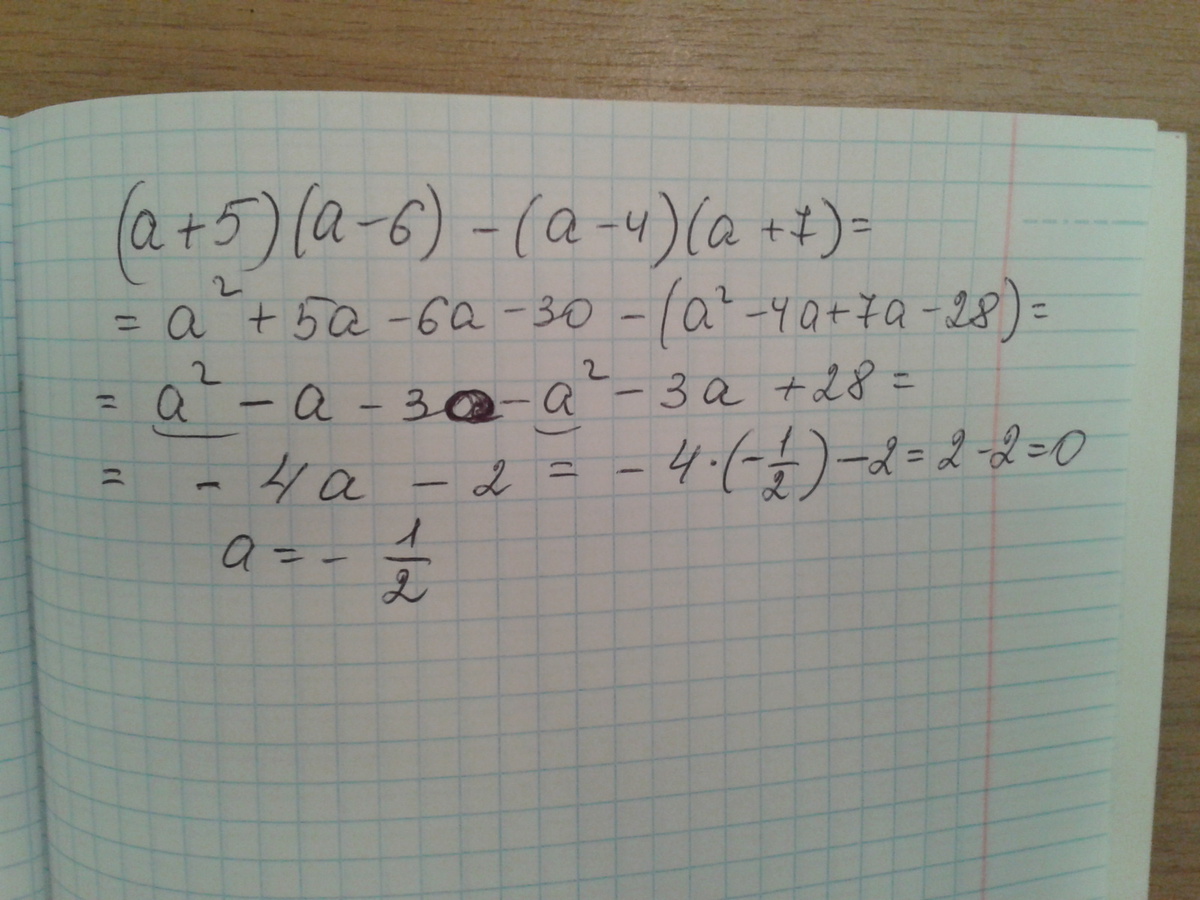 (a+5)(a-6) - (a-4)(a+7)=
= a² + 5a - 6a - 30 - (a² - 4a + 7a - 28) =
= a² - a - 30 - a² - 3a + 28 =
= - 4a - 2 = - 4·(-1/2) - 2 = 2 - 2 = 0
a = - 1/2